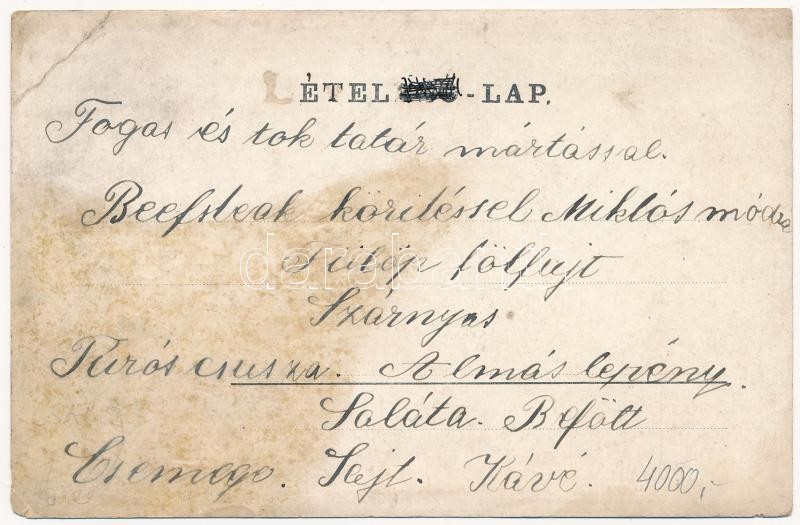 LÉTEL -LAP.
Fogas és tok tatár mártással.
Beefsteak körítéssel Miklós módra
Fülöp fölfujt
Szárnyas
Turós csusza. Almás lepény.
Saláta. Befőtt
Csemege. Sajt. Kávé. 4000,-